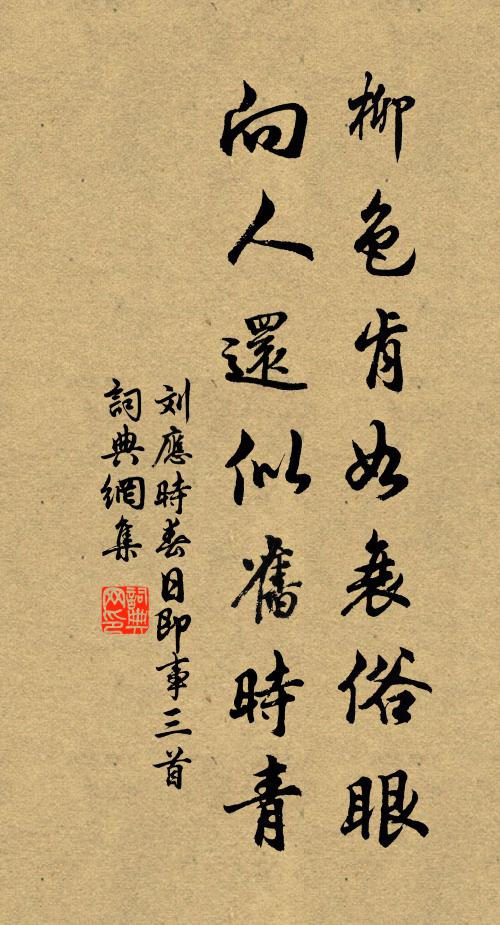 柳色肯如衰俗眼
向人還似舊時青
刘應時春日即事三首
詞典網集
詞典
网印